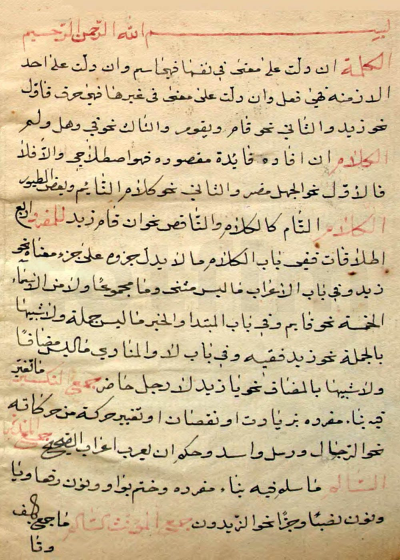 بسم الله الرحمن الرحيم
الكلمة ان دلت على معنى في نفسها فهي اسم وان دلت على احد
الازمنة فهي فعل وان دلت على معنى في غيرها فهي حرف فالاول
نحو زيد والثاني نحو قام ويقوم والثالث نحو في وهل ولم
الكلام ان افاده فايدة مقصوده فهو اصطلاحي والا فلا
فالاول نحو الجمل والثاني نحو كلام النايم وبعض الطيور
الكلام التام كالكلام والناقص نحو ان قام زيد للمفرد اربع
اطلاقات ففي باب الكلام ما لا يدل جزوه على جزء معناه نحو
زيد وفي باب الاعراب ما ليس مثنى وما مجموعا ولا من الاسماء
الخمسة نحو قايم وفي باب المبتدا والخبر ما ليس جملة ولا شبيها
بالجملة نحو زيد فقيه وفي باب لا والمنادي ما ليس مضافا
ولا شبيها بالمضاف نحو يا زيد لا رجل حاضر جمع التكسير ما تغير
فيه بناء مفرده بزيادت او نقصان او تغيير حركة من حركاته
نحو الرجال ورسل واسد وحكمه ان يعرب اعراب الصحيح جمع المذكر
السالم ما سلم فيه بناء مفرده وختم بواو ونون رفعا ويا
ونون نصبا وجرا نحو الزيدون جمع المونث السالم ما جمع بالف
وتا